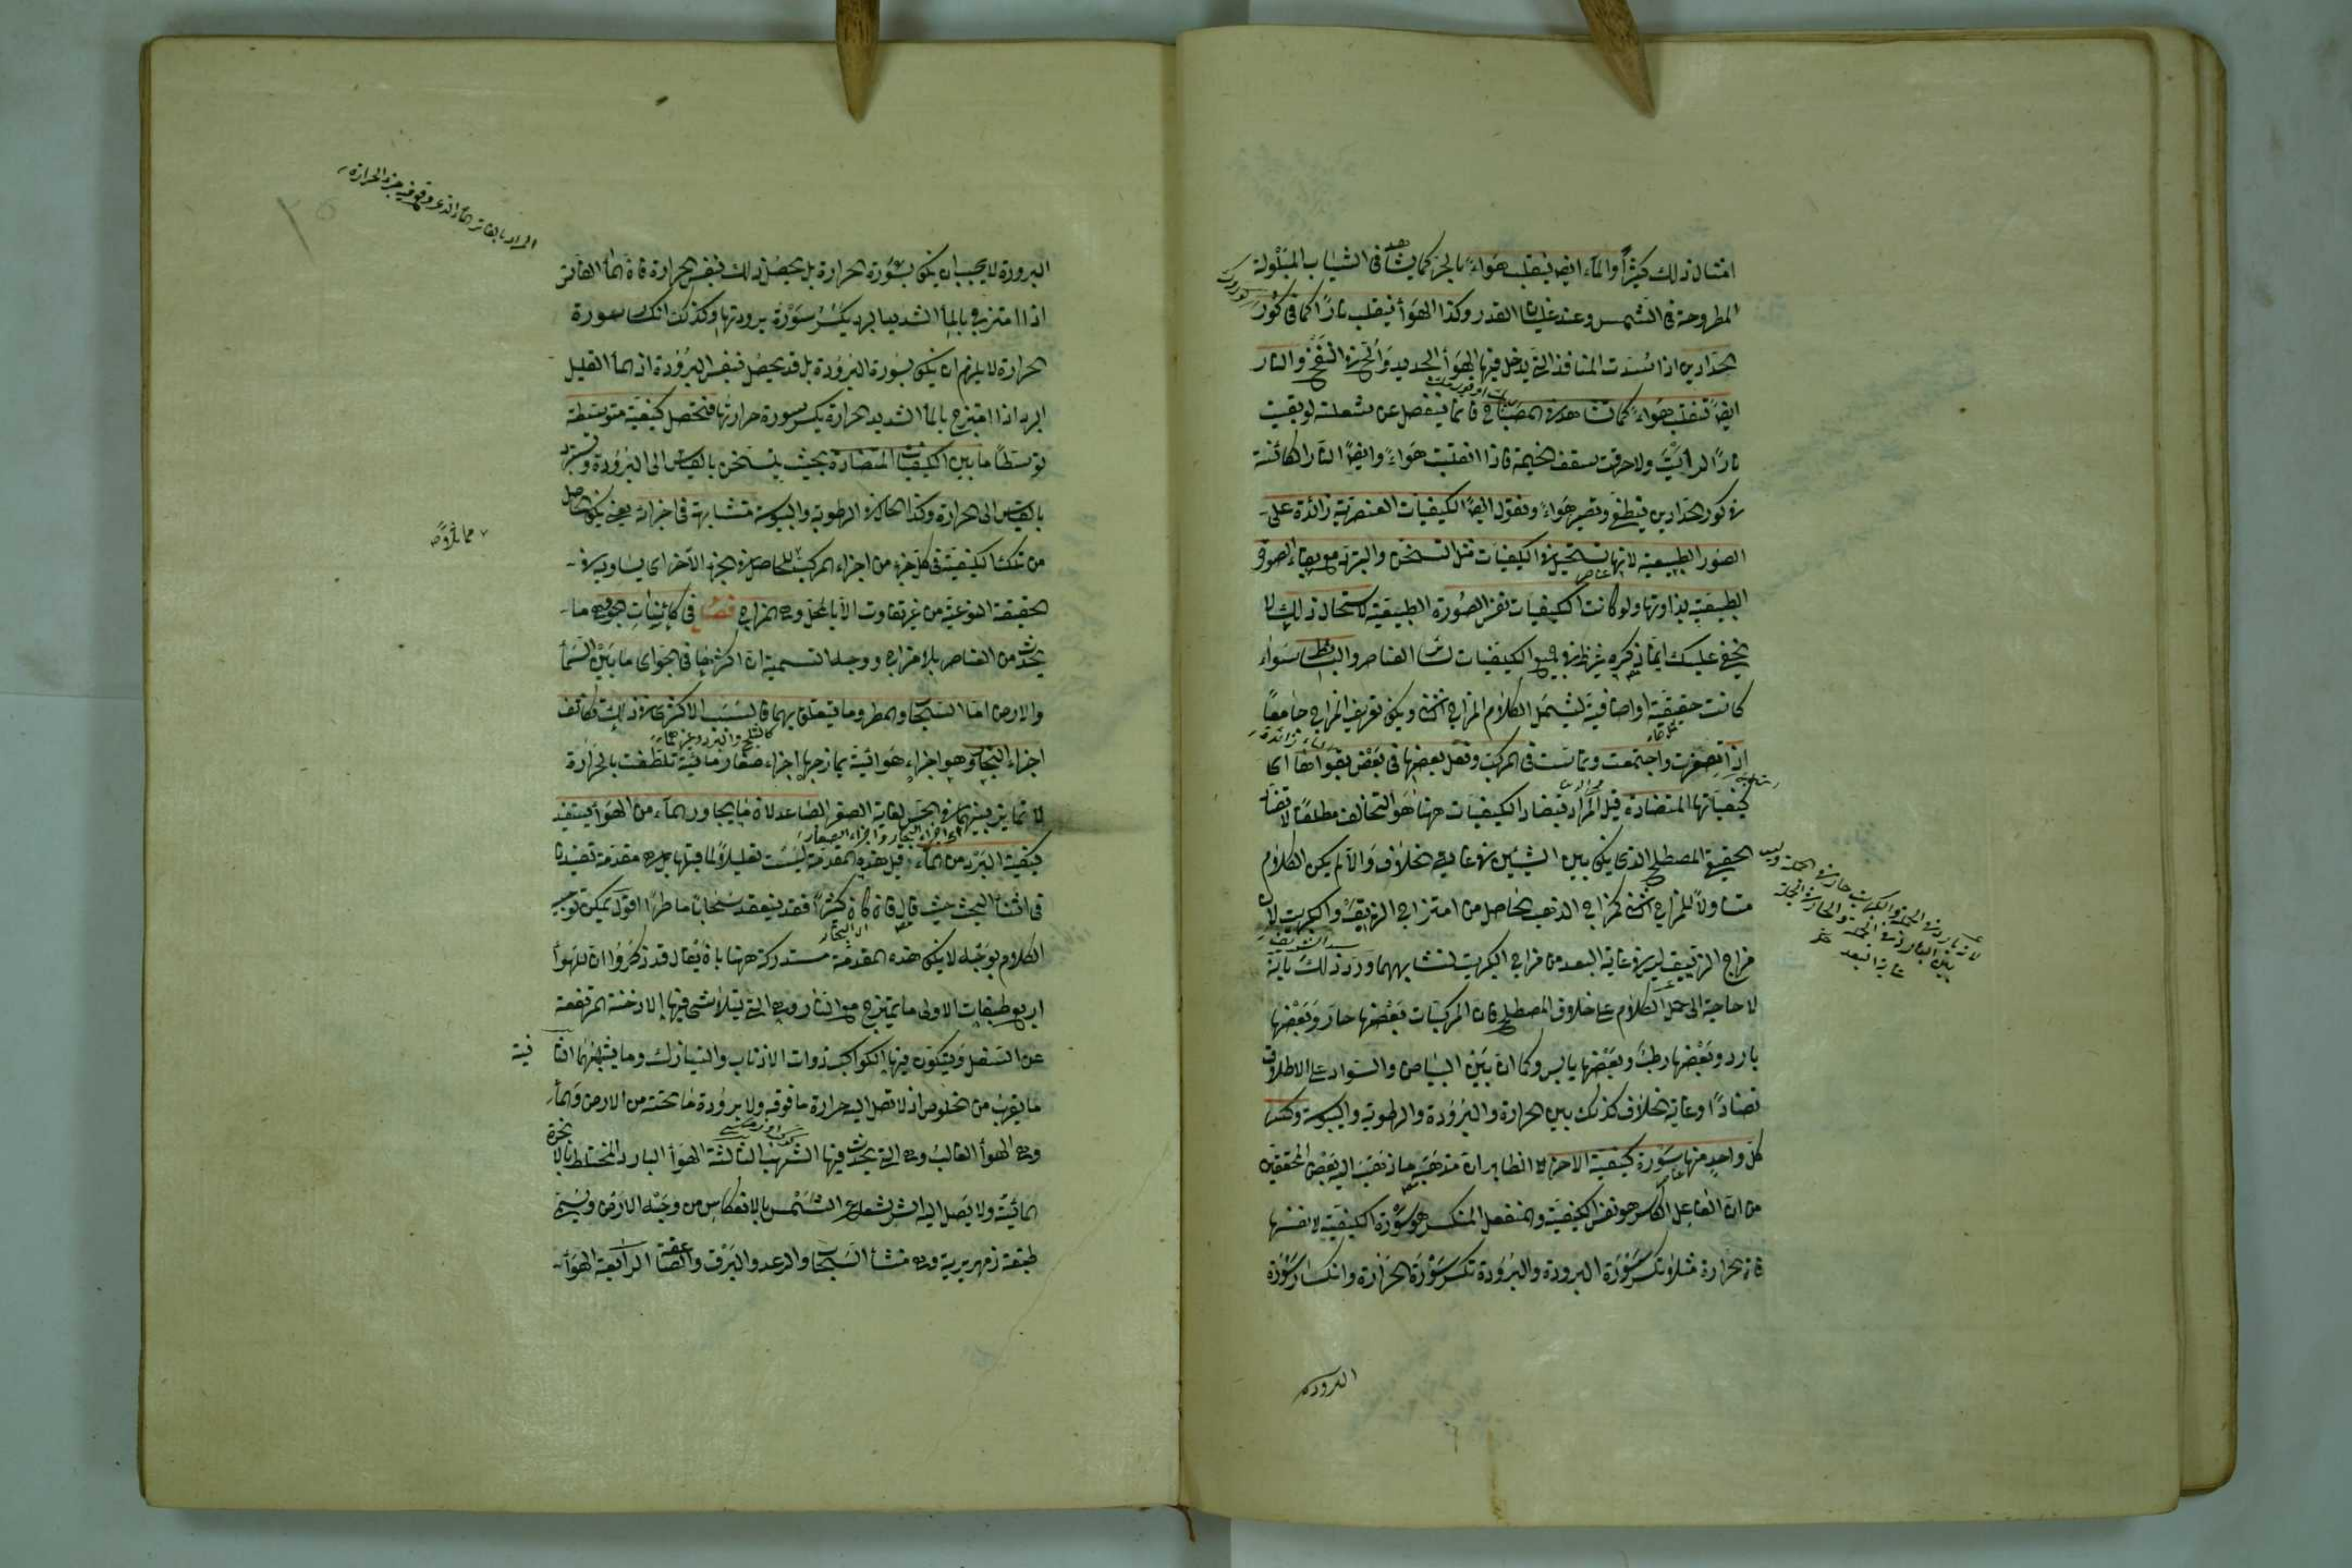 امثال ذلك كثيرًا والماء ايضا ينقلب هواء بالحر كما يشاهد فى الثياب المبلولة
المطروحة فى الشمس وعند غليان القدر وكذا الهواء ينقلب نارًا كما فى كور
الحدادين اذا سدت المنافذ التى يدخل فيها الهواء الجديد والح فى النفخ والنار
ايضا تنقلب هواء كما تشاهد فى المصباح فانما ينفصل عن شعلته لو بقيت
نارًا لرأيت ولاحرقت سقف الخيمة فاذا انقلبت هواء وايضا النار الكائنة
فى كور الحدادين ينطفى وتصير هواء ونقول ايضا الكيفيات العنصرية زائدة على
الصور الطبيعية لانها تستحيل فى الكيفيات مثل التسخن والتبرد مع بقاء الصور
الطبيعية بذاوتها ولو كانت الكيفيات نفس الصورة الطبيعية لاستحال ذلك لا
يخفى عليك ان ما ذكره يظهر فى جميع الكيفيات لسائر العناصر والبسائط سواء
كانت حقيقية او اضافية ليشمل الكلام المزاج الثانى ويكون تعريف المزاج جامعًا
اذا تصغرت واجتمعت وتماست فى المركب وفعل بعضها فى بعض بقواها اى
كيفياتها المتضادة قيل المراد بتضاد الكيفيات ههنا هو التخالف مطلقًا لا تضاد
الحقيقى المصطلح الذى يكون بين الشيئين فى غاية الخلاف والا لم يكن الكلام
متناولًا للمزاج الثانى كمزاج الذهب الحاصل من امتزاج الزيبق والكبريت لان
مزاج الزيبق ليس فى غاية البعد من مزاج الكبريت لتشابههما ورد ذلك بانه
لا حاجة الى حمل الكلام على خلاف المصطلح فان المركبات بعضها حار وبعضها
بارد وبعضها رطب وبعضها يابس وكما ان بين البياض والسواد على الاطلاق
تضادًا وغاية الخلاف كذلك بين الحرارة والبرودة والرطوبة واليبوسة وكسر
كل واحد منها سورة كيفية الاخر الظاهر ان مذهبه ما ذهب اليه بعض المحققين
من ان الفاعل الكاسر هو نفس الكيفية والمنفعل المنكسر هو سورة الكيفية لا نفسها
فان الحرارة مثلا تكسر سورة البرودة والبرودة تكسر سورة الحرارة وانكسار سورة
البرودة
البرودة لا يجب ان يكون بسورة الحرارة بل يحصل ذلك بنفس الحرارة فان الماء الفاتر
اذا امتزج بالماء الشديد البرد يكسر سورة برودتها وكذلك انكسار سورة
الحرارة لا يلزم ان يكون بسورة البرودة بل قد يحصل بنفس البرودة اذ الماء القليل
البرد اذا امتزج بالماء الشديد الحرارة يكسر سورة حرارتها فتحصل كيفية متوسطة
توسطًا ما بين الكيفيات المتضادة بحيث يتسخن بالقياس الى البرودة ويتبرد
بالقياس الى الحرارة وكذا الحال فى الرطوبة واليبوسة متشابهة فى اجزائه يعنى يكون الحاصل
من تلك الكيفية فى كل جزء من اجزاء المركب للحاصل فى الجزء الاخر اى يساويه فى
الحقيقة النوعية من غير تفاوت الا بالمحل وهى المزاج فصل فى كائنات الجو وهى ما
يحدث من العناصر بلا مزاج ووجه التسمية ان اكثرها فى الجو اى ما بين السماء
والارض اما السحاب والمطر وما يتعلق بهما فالسبب الاكثرى فى ذلك تكاثف
كالثلج والبرد وغيرهما
اجزاء البخار وهو اجزاء هوائية يمازجها اجزاء صغار مائية تلطفت بالحرارة
لا تمايز بينهما فى الحس لغاية الصغر الصاعد لان ما يجاور الماء من الهواء يستفيد
اى اجزاء البخار واجزاء الصغار
كيفية البرد من الماء قيل هذه المقدمة ليست تعليلًا لما قبلها بل هى مقدمة تفيدنا
فى اثناء البحث حيث قال فان كان كثيرًا فقد ينعقد سحابًا ماطرًا اقول يمكن توجيه
الكلام بوجه لا يكون هذه المقدمة مستدركة ههنا بان يقال قد ذكروا ان للهواء
اربع طبقات الاولى ما يمتزج مع النار وهى التى يتلاشى فيها الادخنة المرتفعة
عن السفل ويتكون فيها الكواكب ذوات الاذناب والنيازك وما يشبهها الثانية
ما يقرب من الخلوص اذ لا تصل اليه حرارة ما فوقه ولا برودة ما تحته من الارض والماء
وهى الهواء الغالب وهى التى يحدث فيها الشهب الثالثة الهواء البارد المختلط بالابخرة
المائية ولا يصل اليه اثر شعاع الشمس بالانعكاس من وجه الارض ويسمى
طبقة زمهريرية وهى منشأ السحاب والرعد والبرق والصاعقة الرابعة الهواء